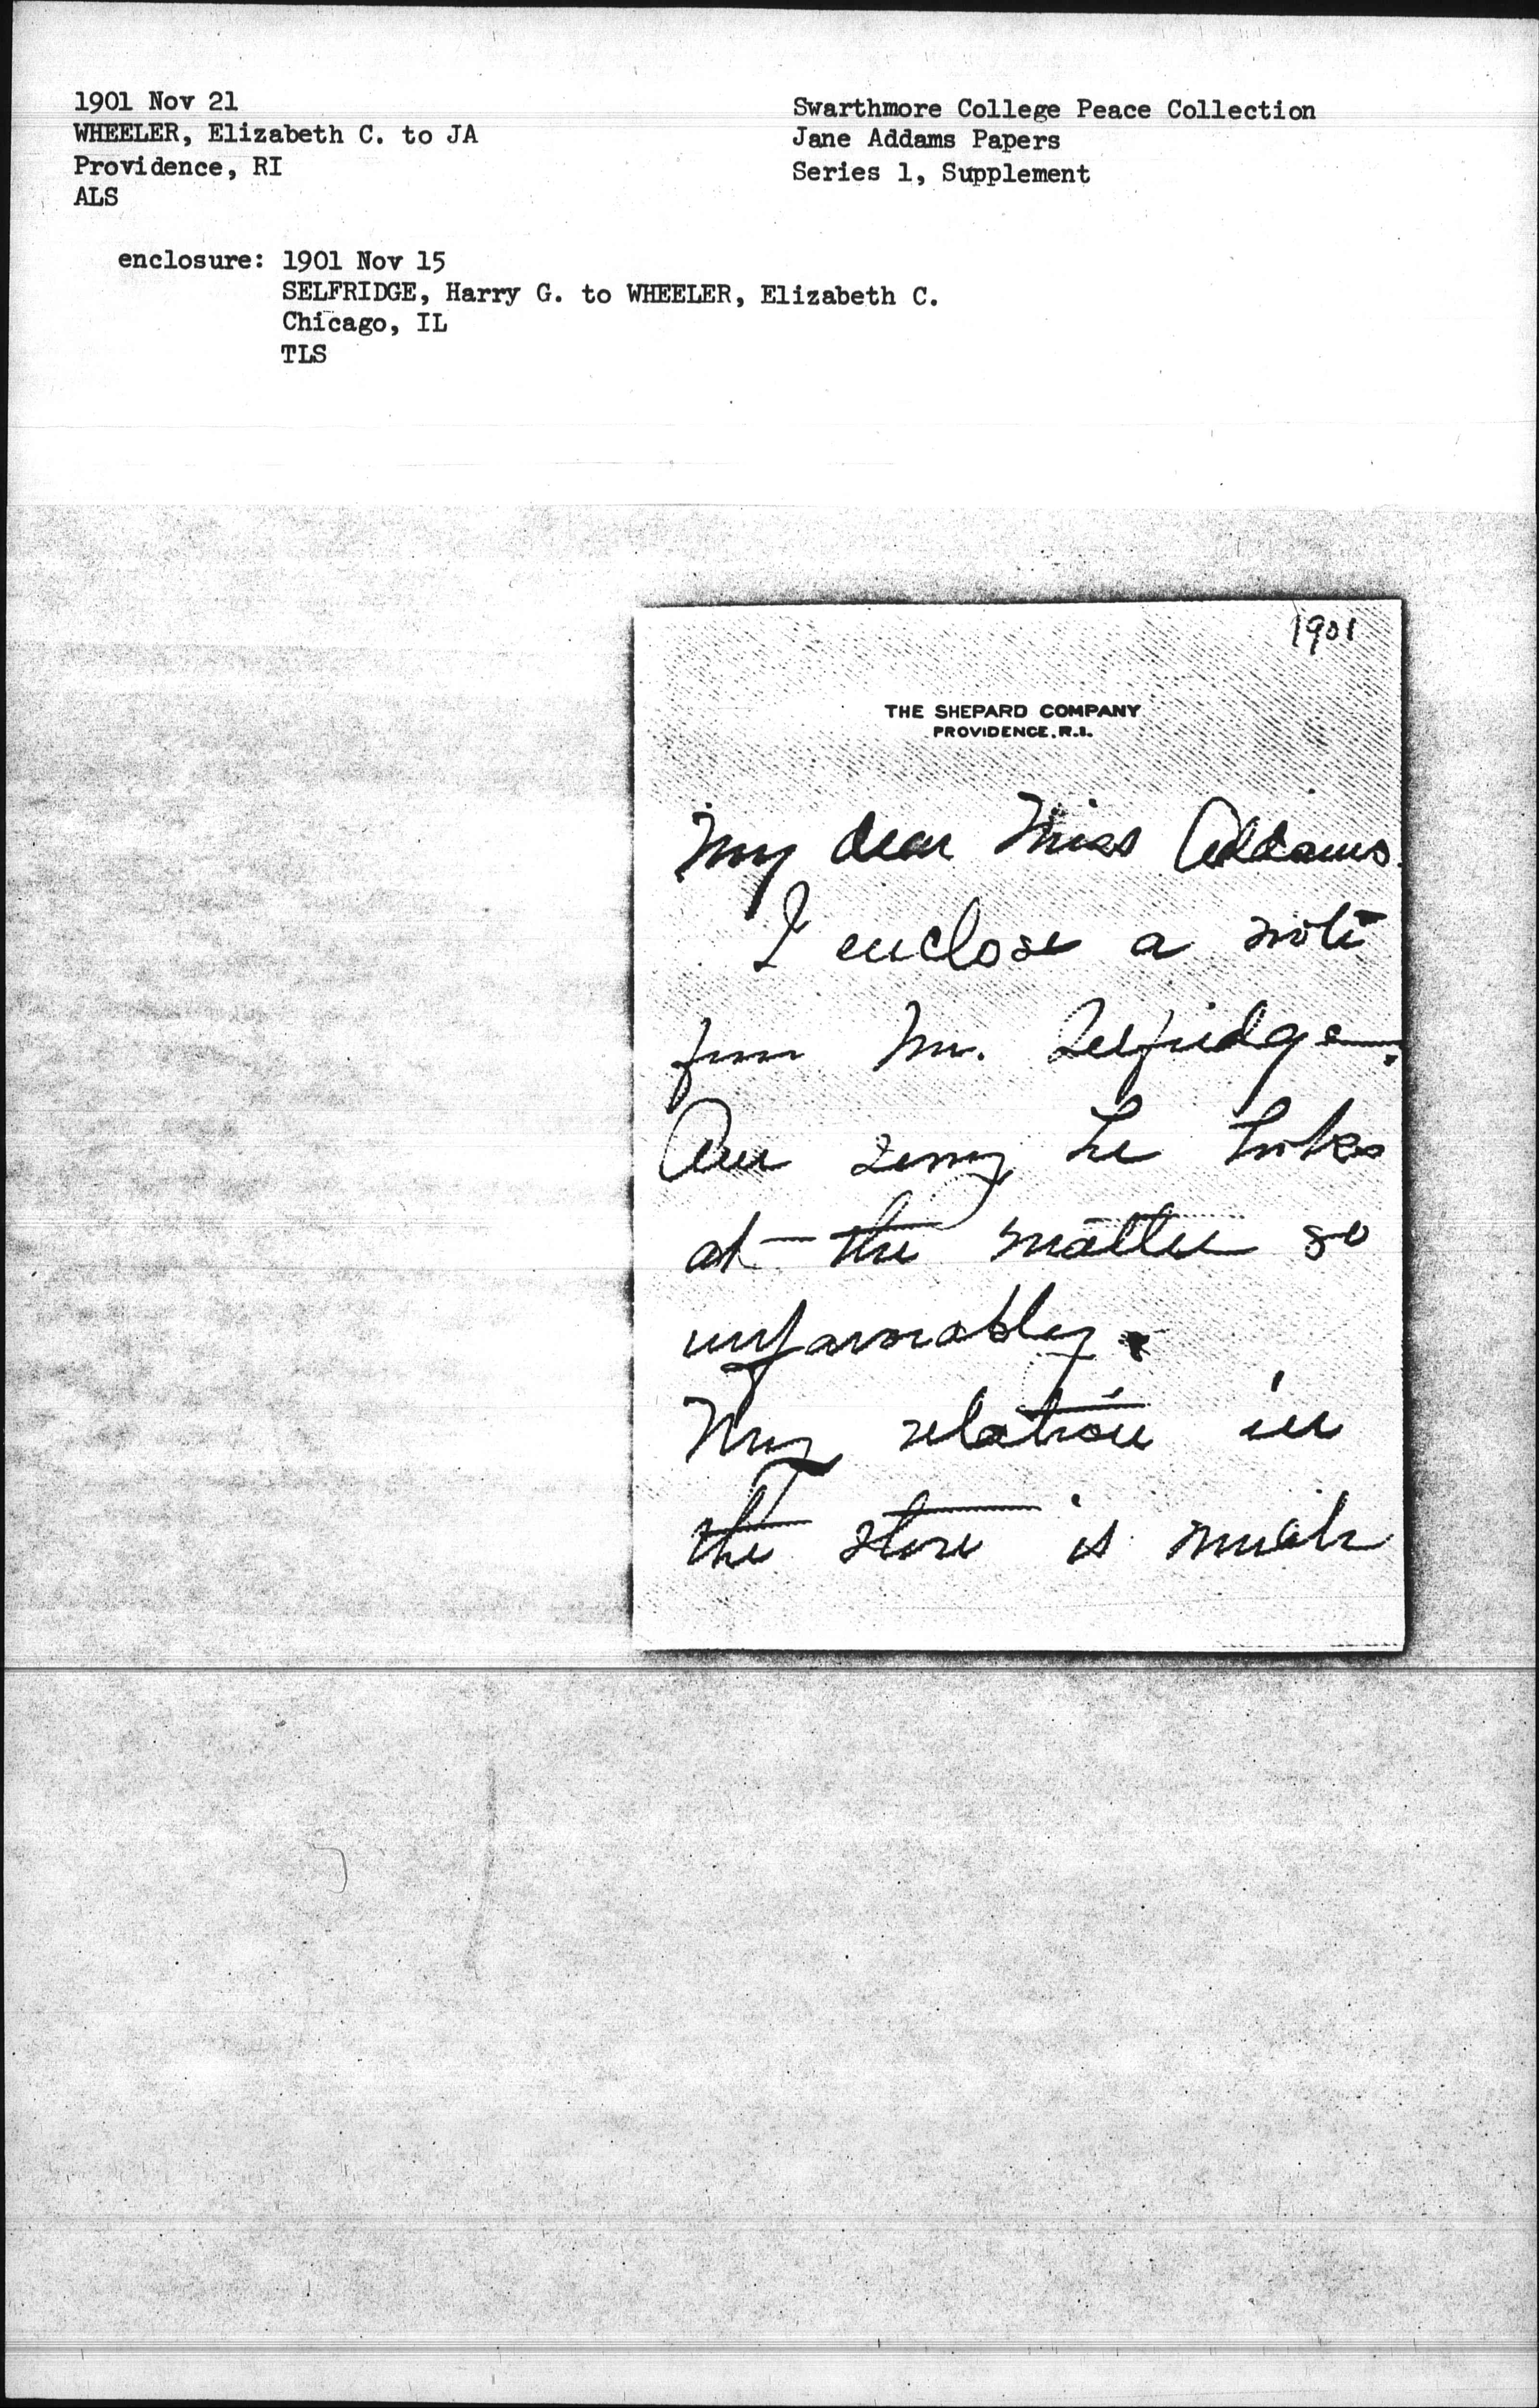 1901 Nov 21
WHEELER, Elizabeth C. to JA
Providence, RI
ALS
Swarthmore College Peace Collection
Jane Addams Papers
Series 1, Supplement
enclosure: 1901 Nov 15
SELFRIDGE, Harry G. to WHEELER, Elizabeth C.
Chicago, IL
TLS
1901
THE SHEPARD COMPANY
PROVIDENCE, R.I.
My dear Miss Addams.
I enclose a note
from Mr. Selfridge.
Am sorry he looks
at the matter so
unfavorably.
My relation in
the store is much